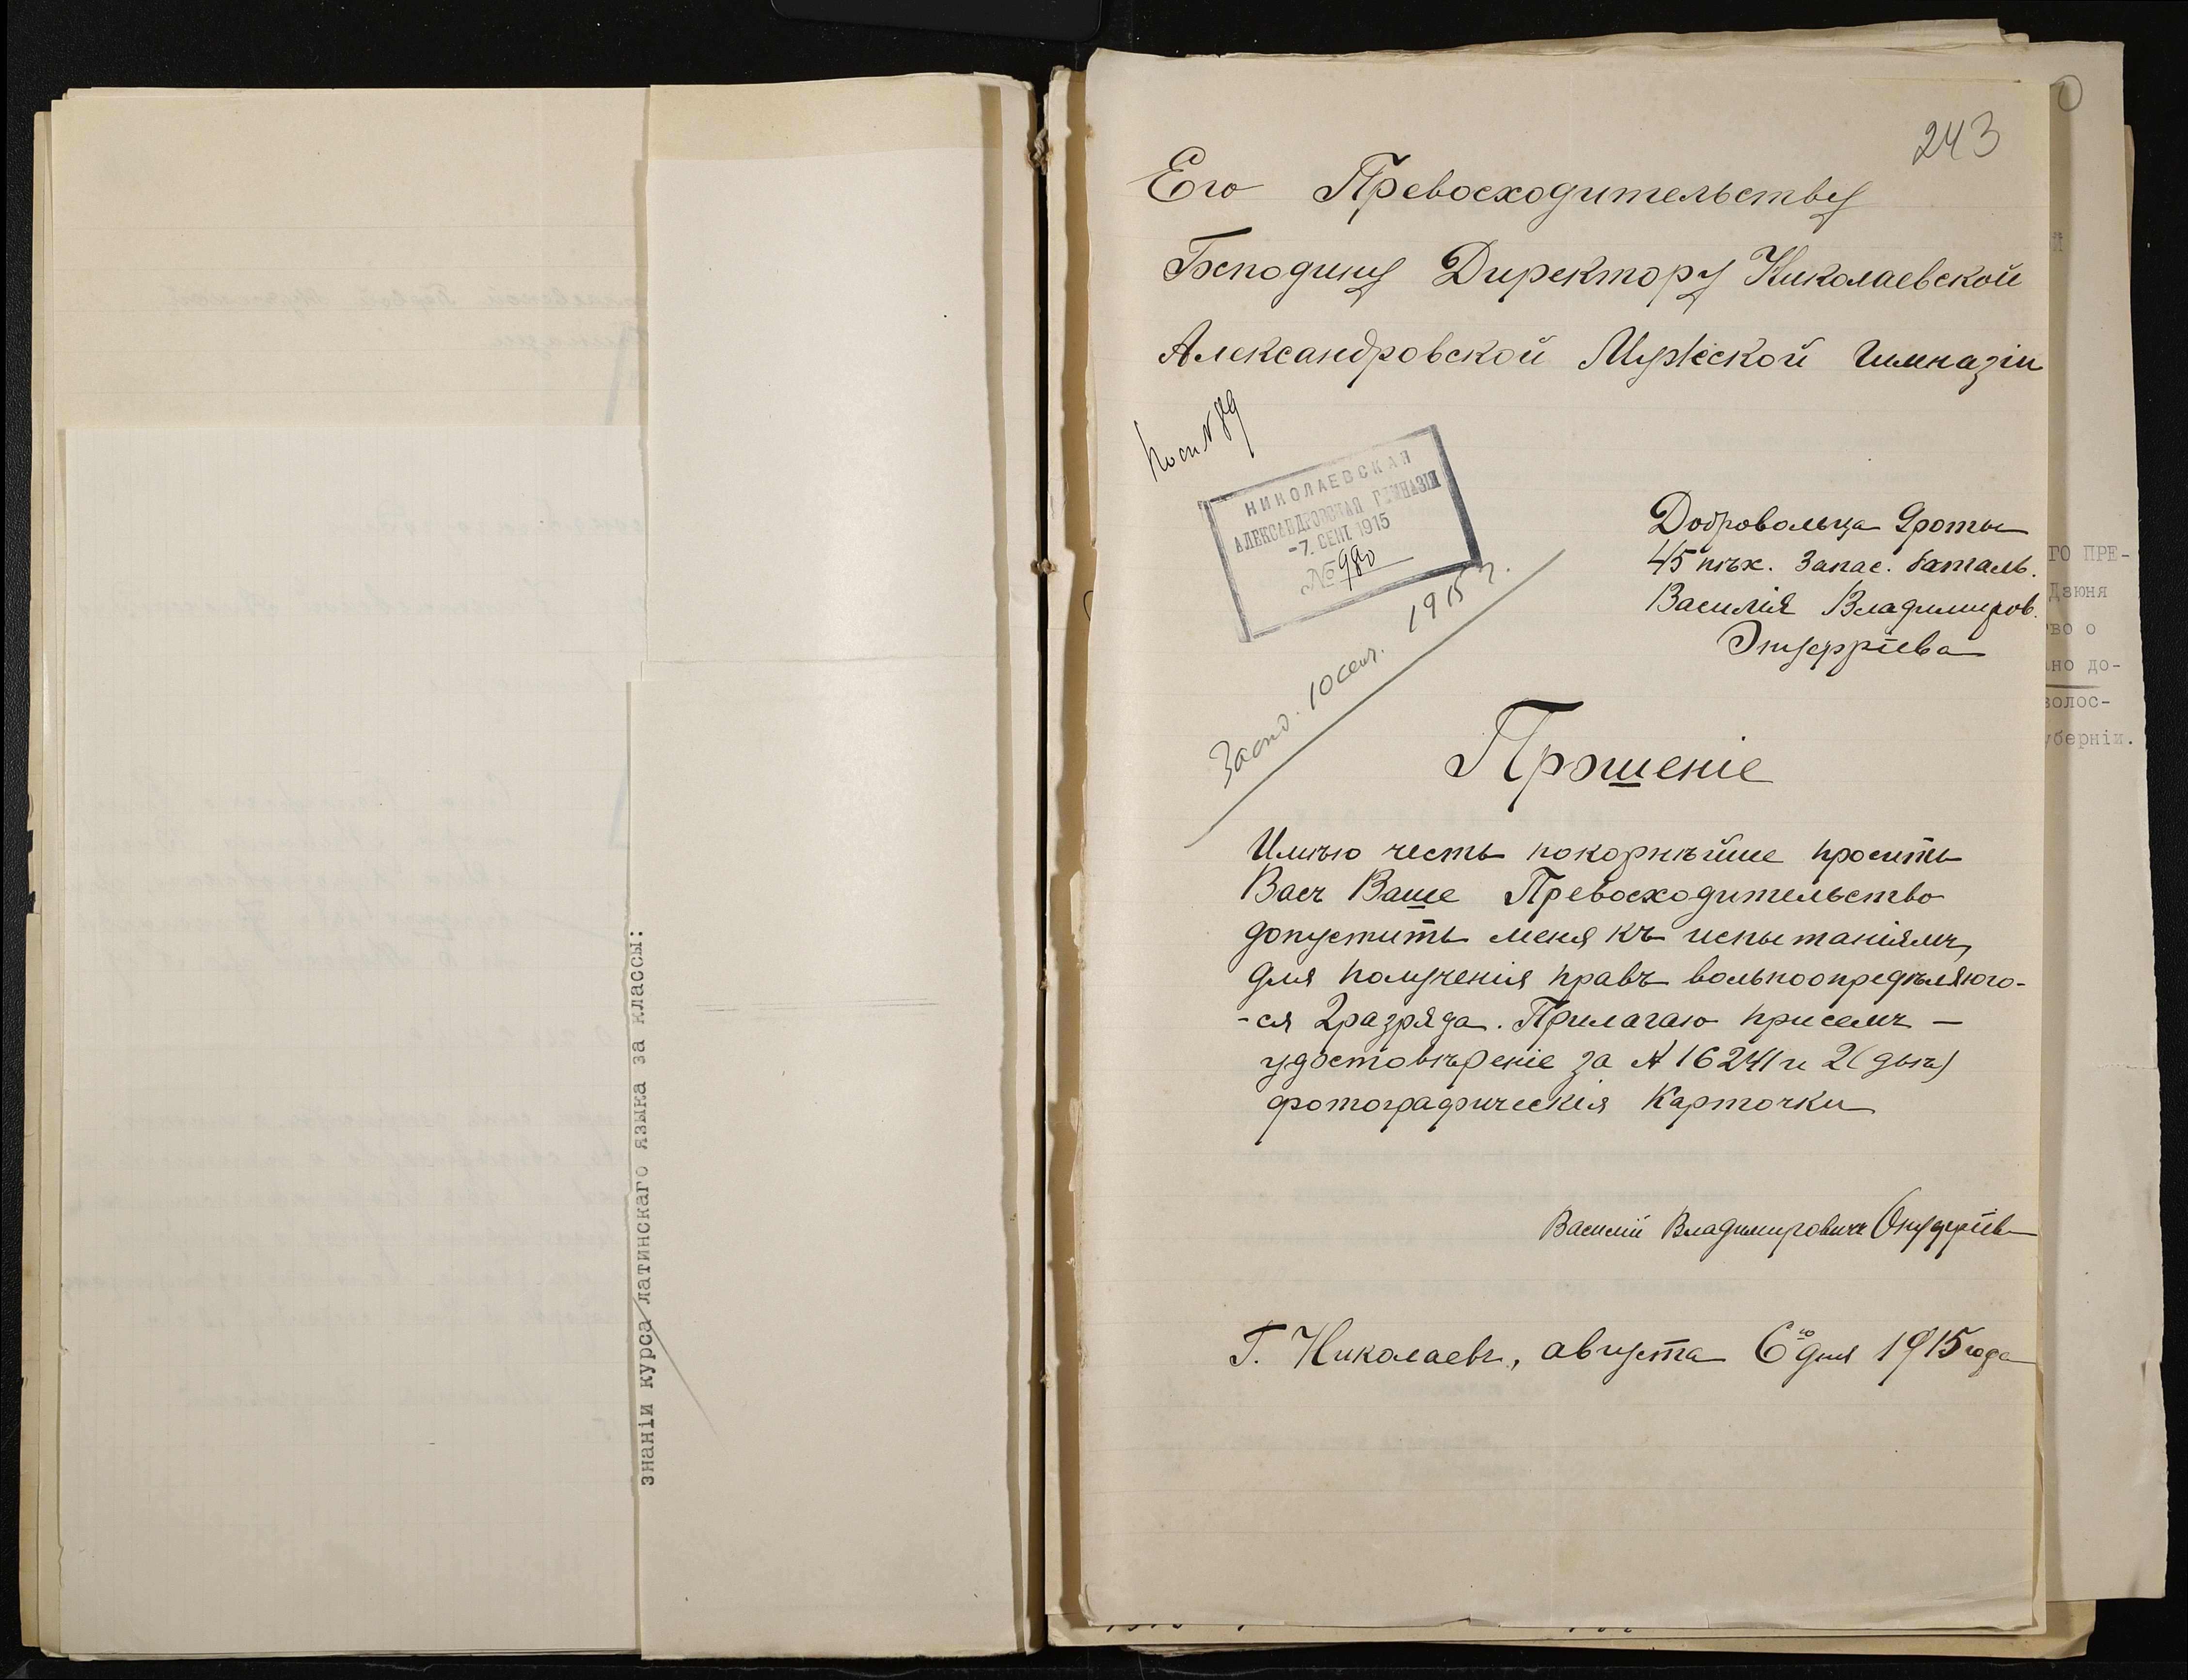 знаніи курса латинскаго языка за классы:
243
Его Превосходительству
Господину Директору Николаевской
Александровской Мужской Гимназіи
НИКОЛАЕВСКАЯ
АЛЕКСАНДРОВСКАЯ ГИМНАЗІЯ
-7. СЕНТ. 1915
№ 980
Добровольца 9 роты
45 пѣх. Запас. баталь.
Василія Владимиров.
Онуфріева
10 сент. 1915 г.
Прошеніе
Имѣю честь покорнѣйше просить
Васъ Ваше Превосходительство
допустить меня къ испытаніямъ,
для полученія правъ вольноопредѣляюго-
-ся 2 разряда. Прилагаю присемъ —
удостовѣреніе за № 16241 и 2 (двѣ)
фотографическія карточки
Василій Владимировичъ Онуфріев
Г. Николаевъ, августа 6го дня 1915 года
ГО ПРЕ-
Дзюня
во о
но до-
волос-
уберніи.